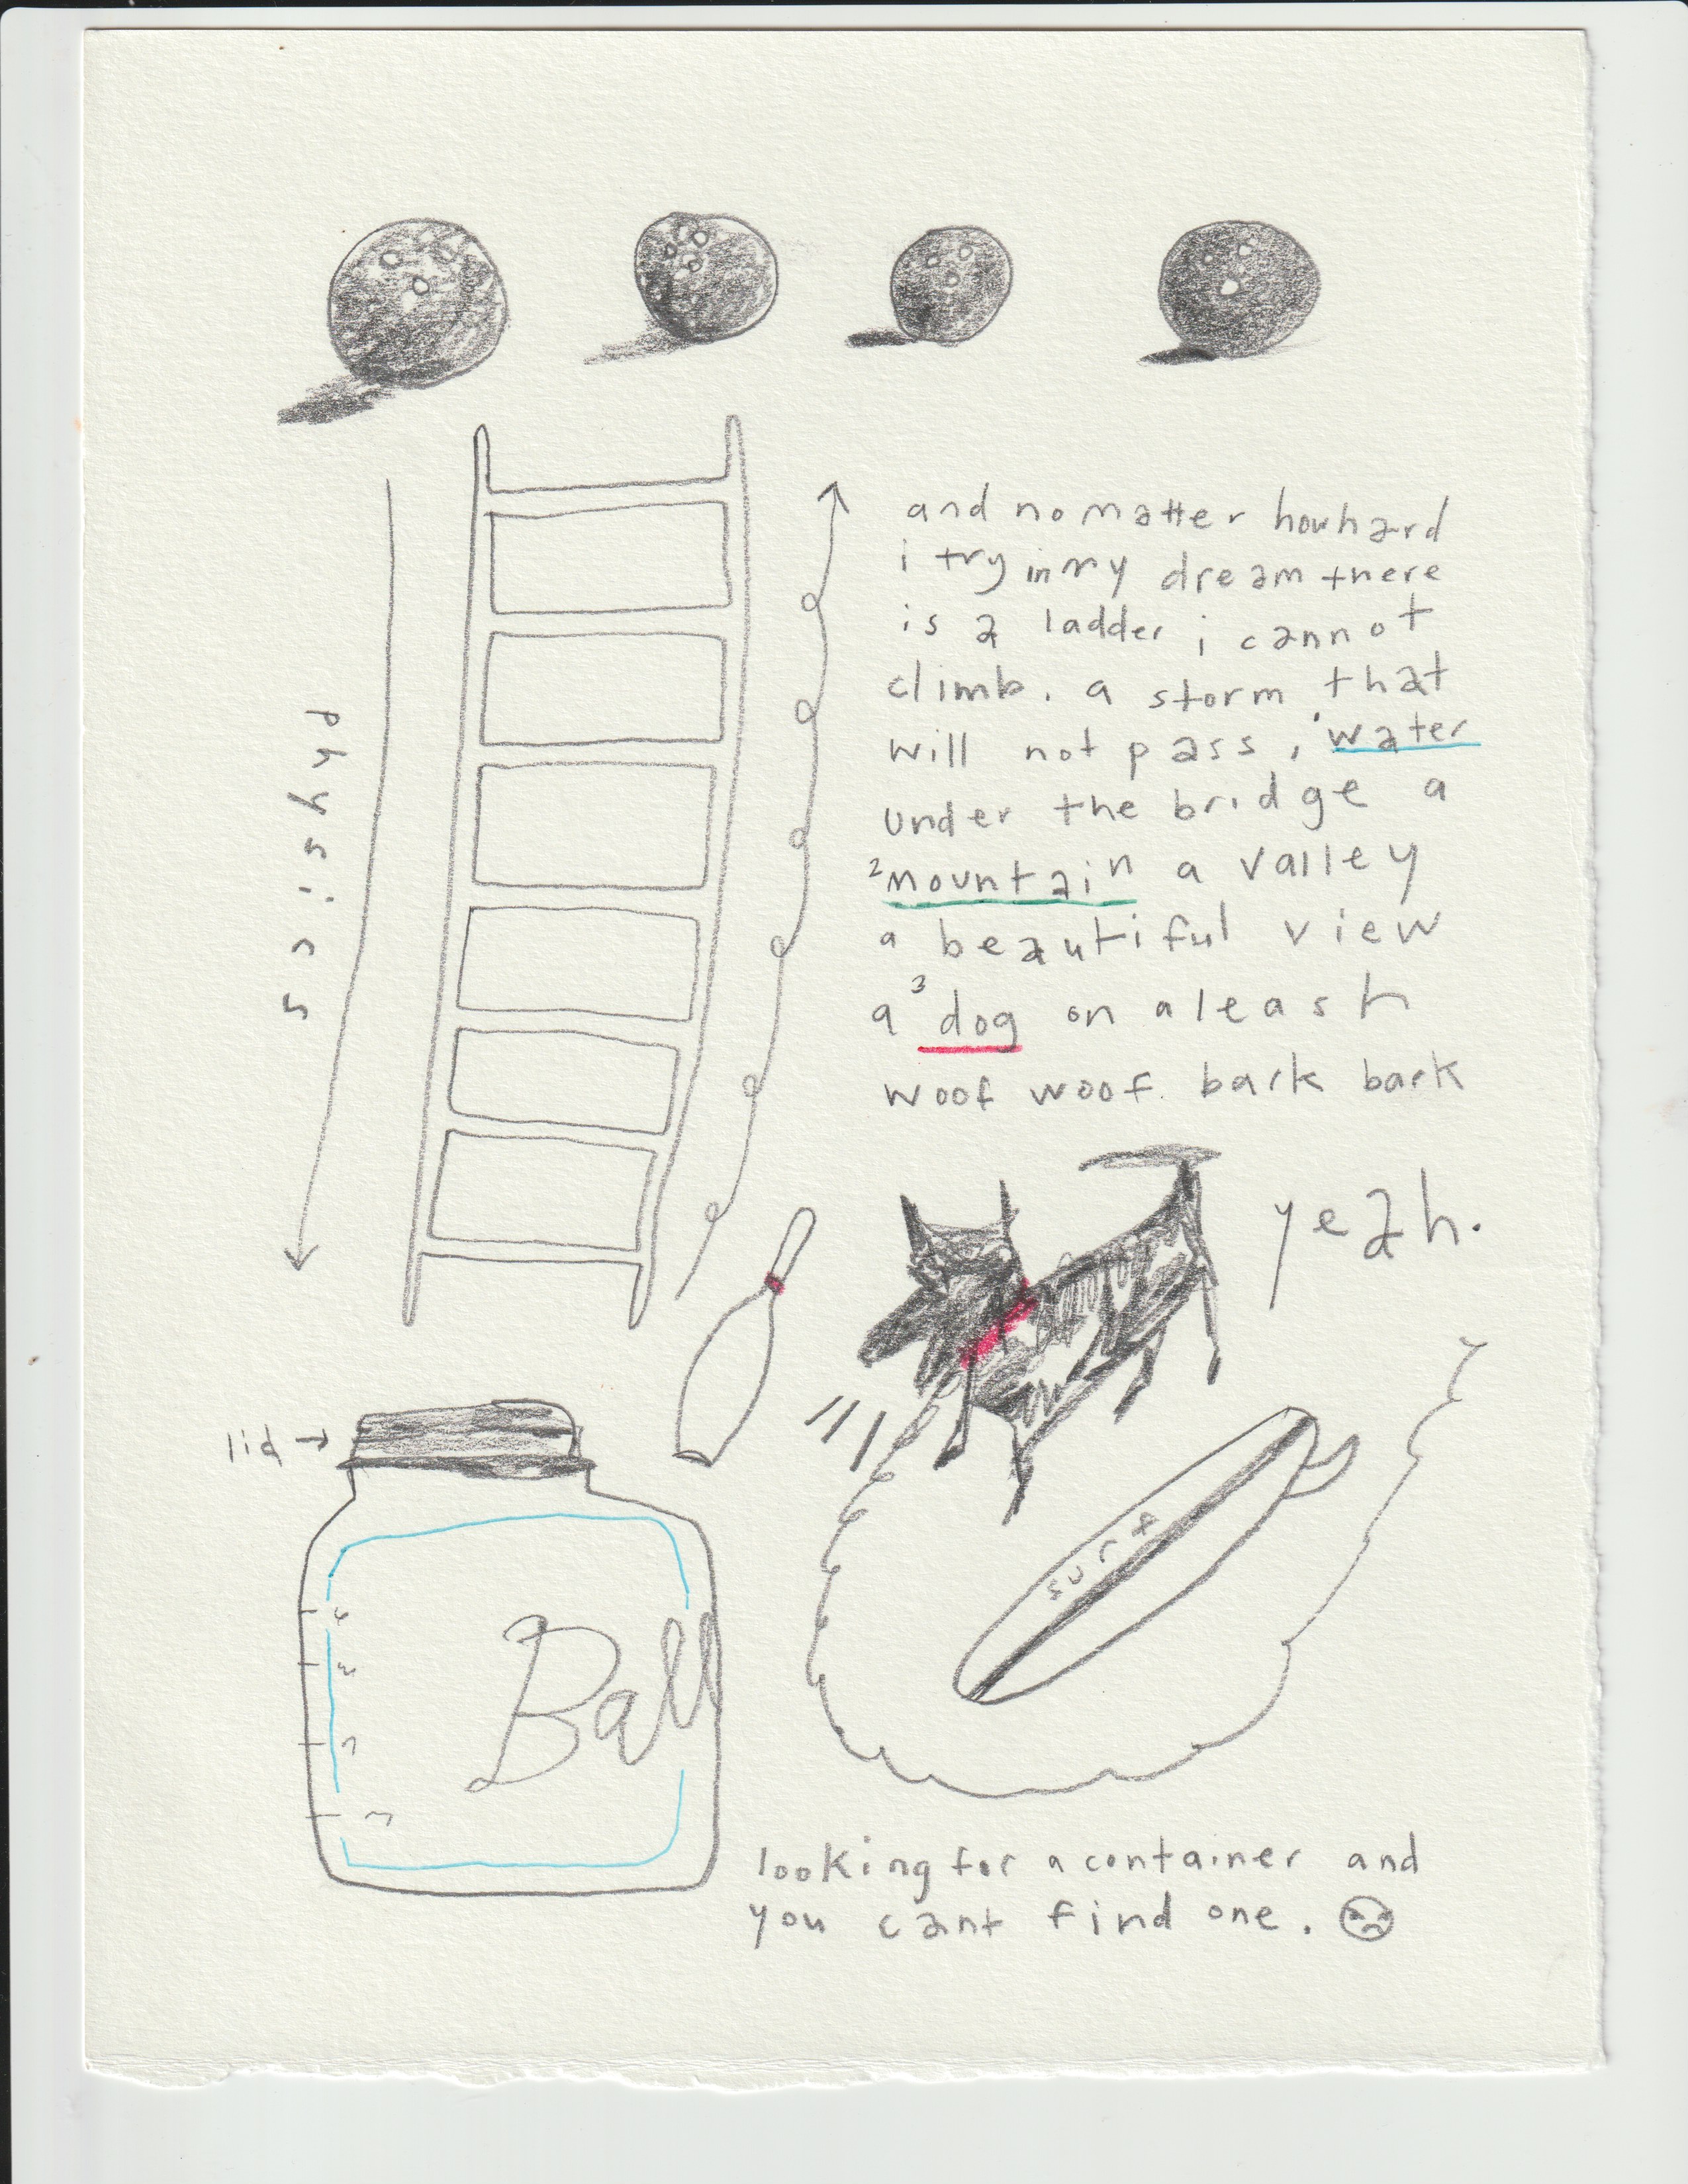 and no matter how hard
i try in my dream there
is a ladder i cannot
climb. a storm that
will not pass, ¹water
under the bridge a
²mountain a valley
a beautiful view
a ³dog on a leash
woof woof. bark bark
physics
yeah.
lid →
surf
Ball
looking for a container and
you cant find one.